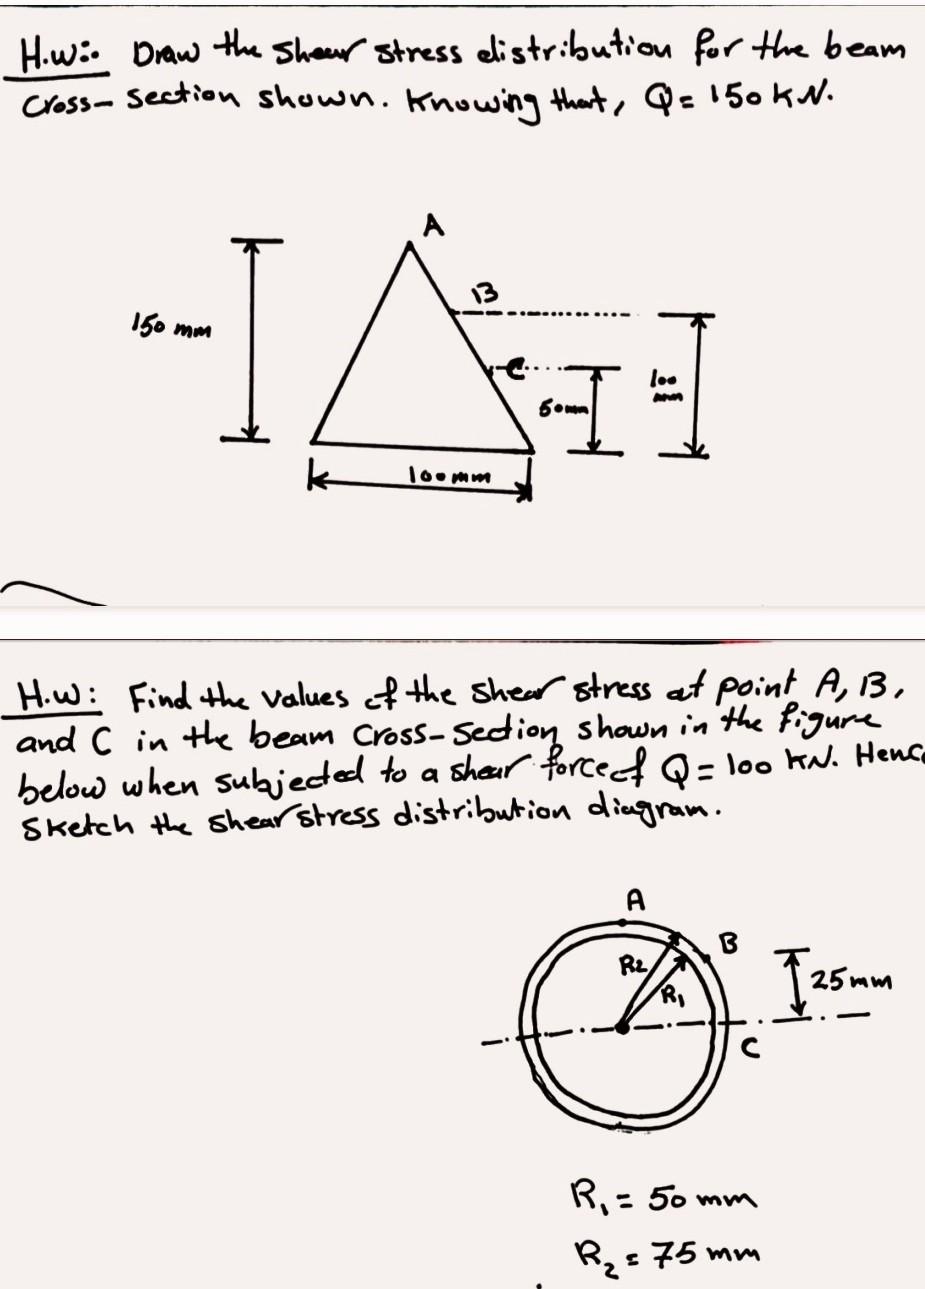 H.W:. Draw the shear stress distribution for the beam
cross-section shown. Knowing that, Q = 150 kN.
A
B
150 mm
C
100 mm
50 mm
100 mm
H.W: Find the values of the shear stress at point A, B,
and C in the beam cross-section shown in the figure
below when subjected to a shear force of Q = 100 kN. Henc
Sketch the shear stress distribution diagram.
A
B
R2
25 mm
R1
C
R1 = 50 mm
R2 = 75 mm